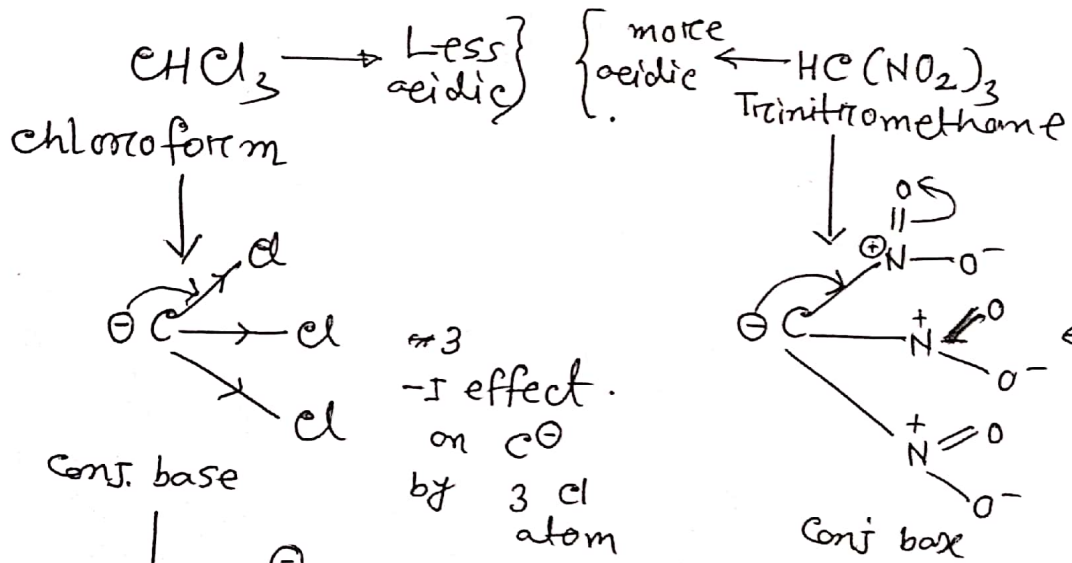 CHCl3 → Less acidic} {more acidic ← HC(NO2)3
chloroform
Trinitromethane
⊖ C Cl
Cl
Cl
3
-I effect.
on C⊖
by 3 Cl
atom
Conj. base
⊖
O
⊕N — O-
⊖ C
+N O
O-
+N = O
O-
Conj base